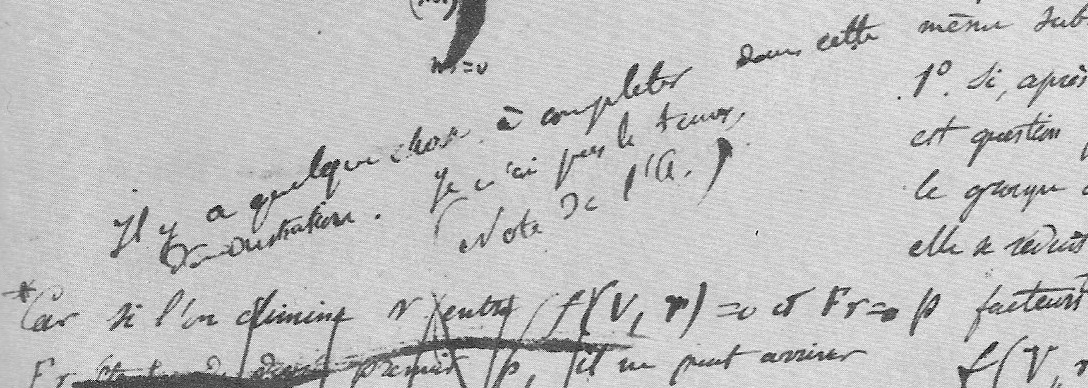 m = 0
Il y a quelque chose à completer dans cette
Démonstration. Je n'ai pas le tems,
(Note de l'A.)
même sub
1°. Si, après
est question
le groupe
elle se réduit
Car si l'on élimine r entre f(V, r) = 0 et Fr = 0 p facteurs
Fr premier p, il ne peut arriver f(V, r